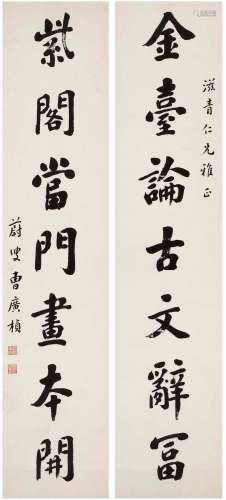 滋青仁兄雅正
金臺論古文辭富
紫閣當門畫本開
蔚叟曹廣楨